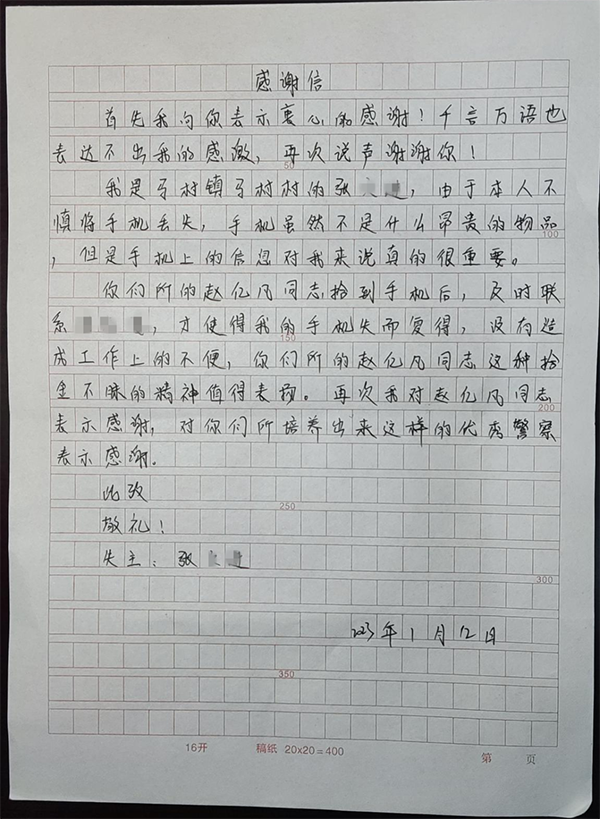 感谢信
首先我向你表示衷心的感谢！千言万语也
表达不出我的感激，再次说声谢谢你！
50
我是弓村镇弓村村的张，由于本人不
慎将手机丢失，手机虽然不是什么昂贵的物品
100
，但是手机上的信息对我来说真的很重要。
你们所的赵亿凡同志拾到手机后，及时联
系，才使得我的手机失而复得，没有造
150
成工作上的不便，你们所的赵亿凡同志这种拾
金不昧的精神值得表扬。再次我对赵亿凡同志
200
表示感谢，对你们所培养出来这样的优秀警察
表示感谢。
此致
250
敬礼！
失主：张
300
2023年1月12日
350
16开 稿纸 20×20=400 第 页